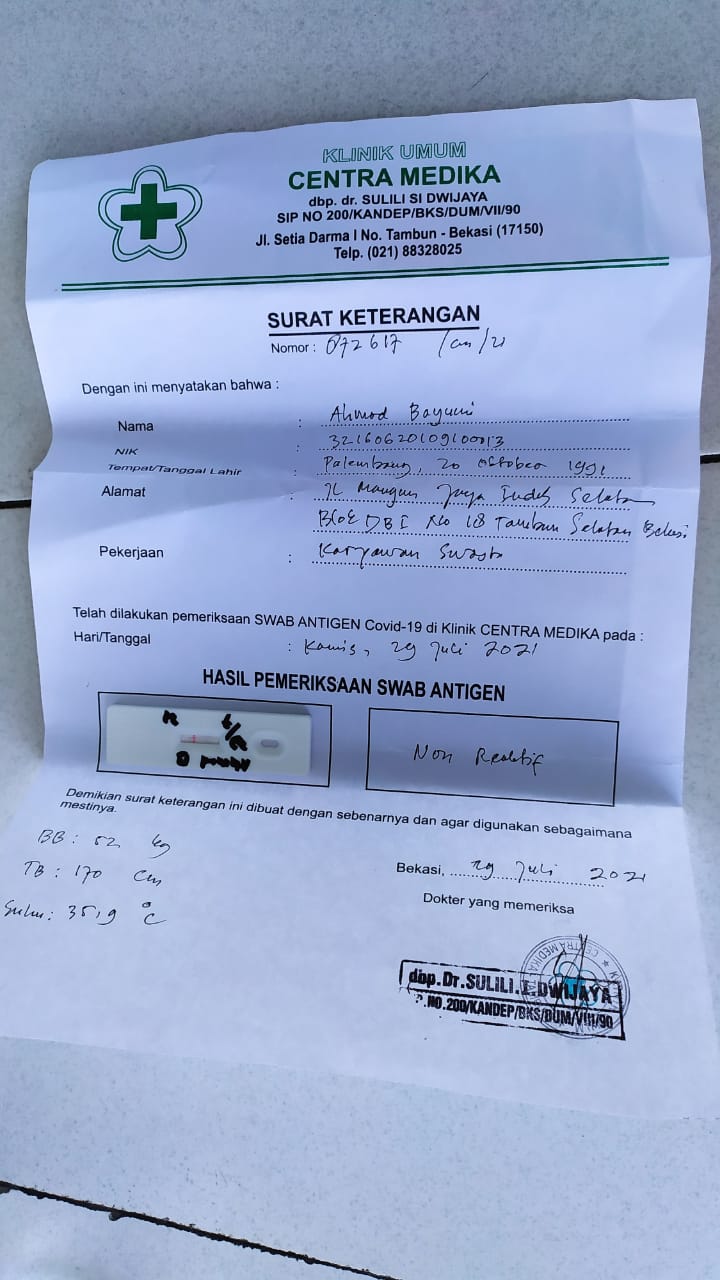 KLINIK UMUM
CENTRA MEDIKA
dbp. dr. SULILI SI DWIJAYA
SIP NO 200/KANDEP/BKS/DUM/VII/90
Jl. Setia Darma I No. Tambun - Bekasi (17150)
Telp. (021) 88328025
SURAT KETERANGAN
Nomor : 072617 /cm/21
Dengan ini menyatakan bahwa :
Nama : Ahmad Bayumi
NIK : 32160620109100013
Tempat/Tanggal Lahir : Palembang, 20 Oktober 1991
Alamat : JL Mangun Jaya Indah Selatan
Blok DB I No 18 Tambun Selatan Bekasi
Pekerjaan : Karyawan Swasta
Telah dilakukan pemeriksaan SWAB ANTIGEN Covid-19 di Klinik CENTRA MEDIKA pada :
Hari/Tanggal : Kamis, 29 Juli 2021
HASIL PEMERIKSAAN SWAB ANTIGEN
Non Reaktif
Demikian surat keterangan ini dibuat dengan sebenarnya dan agar digunakan sebagaimana
mestinya.
BB : 52 kg
TB : 170 cm
Suhu : 35,9 °C
Bekasi, 29 Juli 2021
Dokter yang memeriksa
dbp.Dr.SULILI.I.DWIJAYA
P.NO.200/KANDEP/BKS/DUM/VIII/90
CENTRA MEDIKA